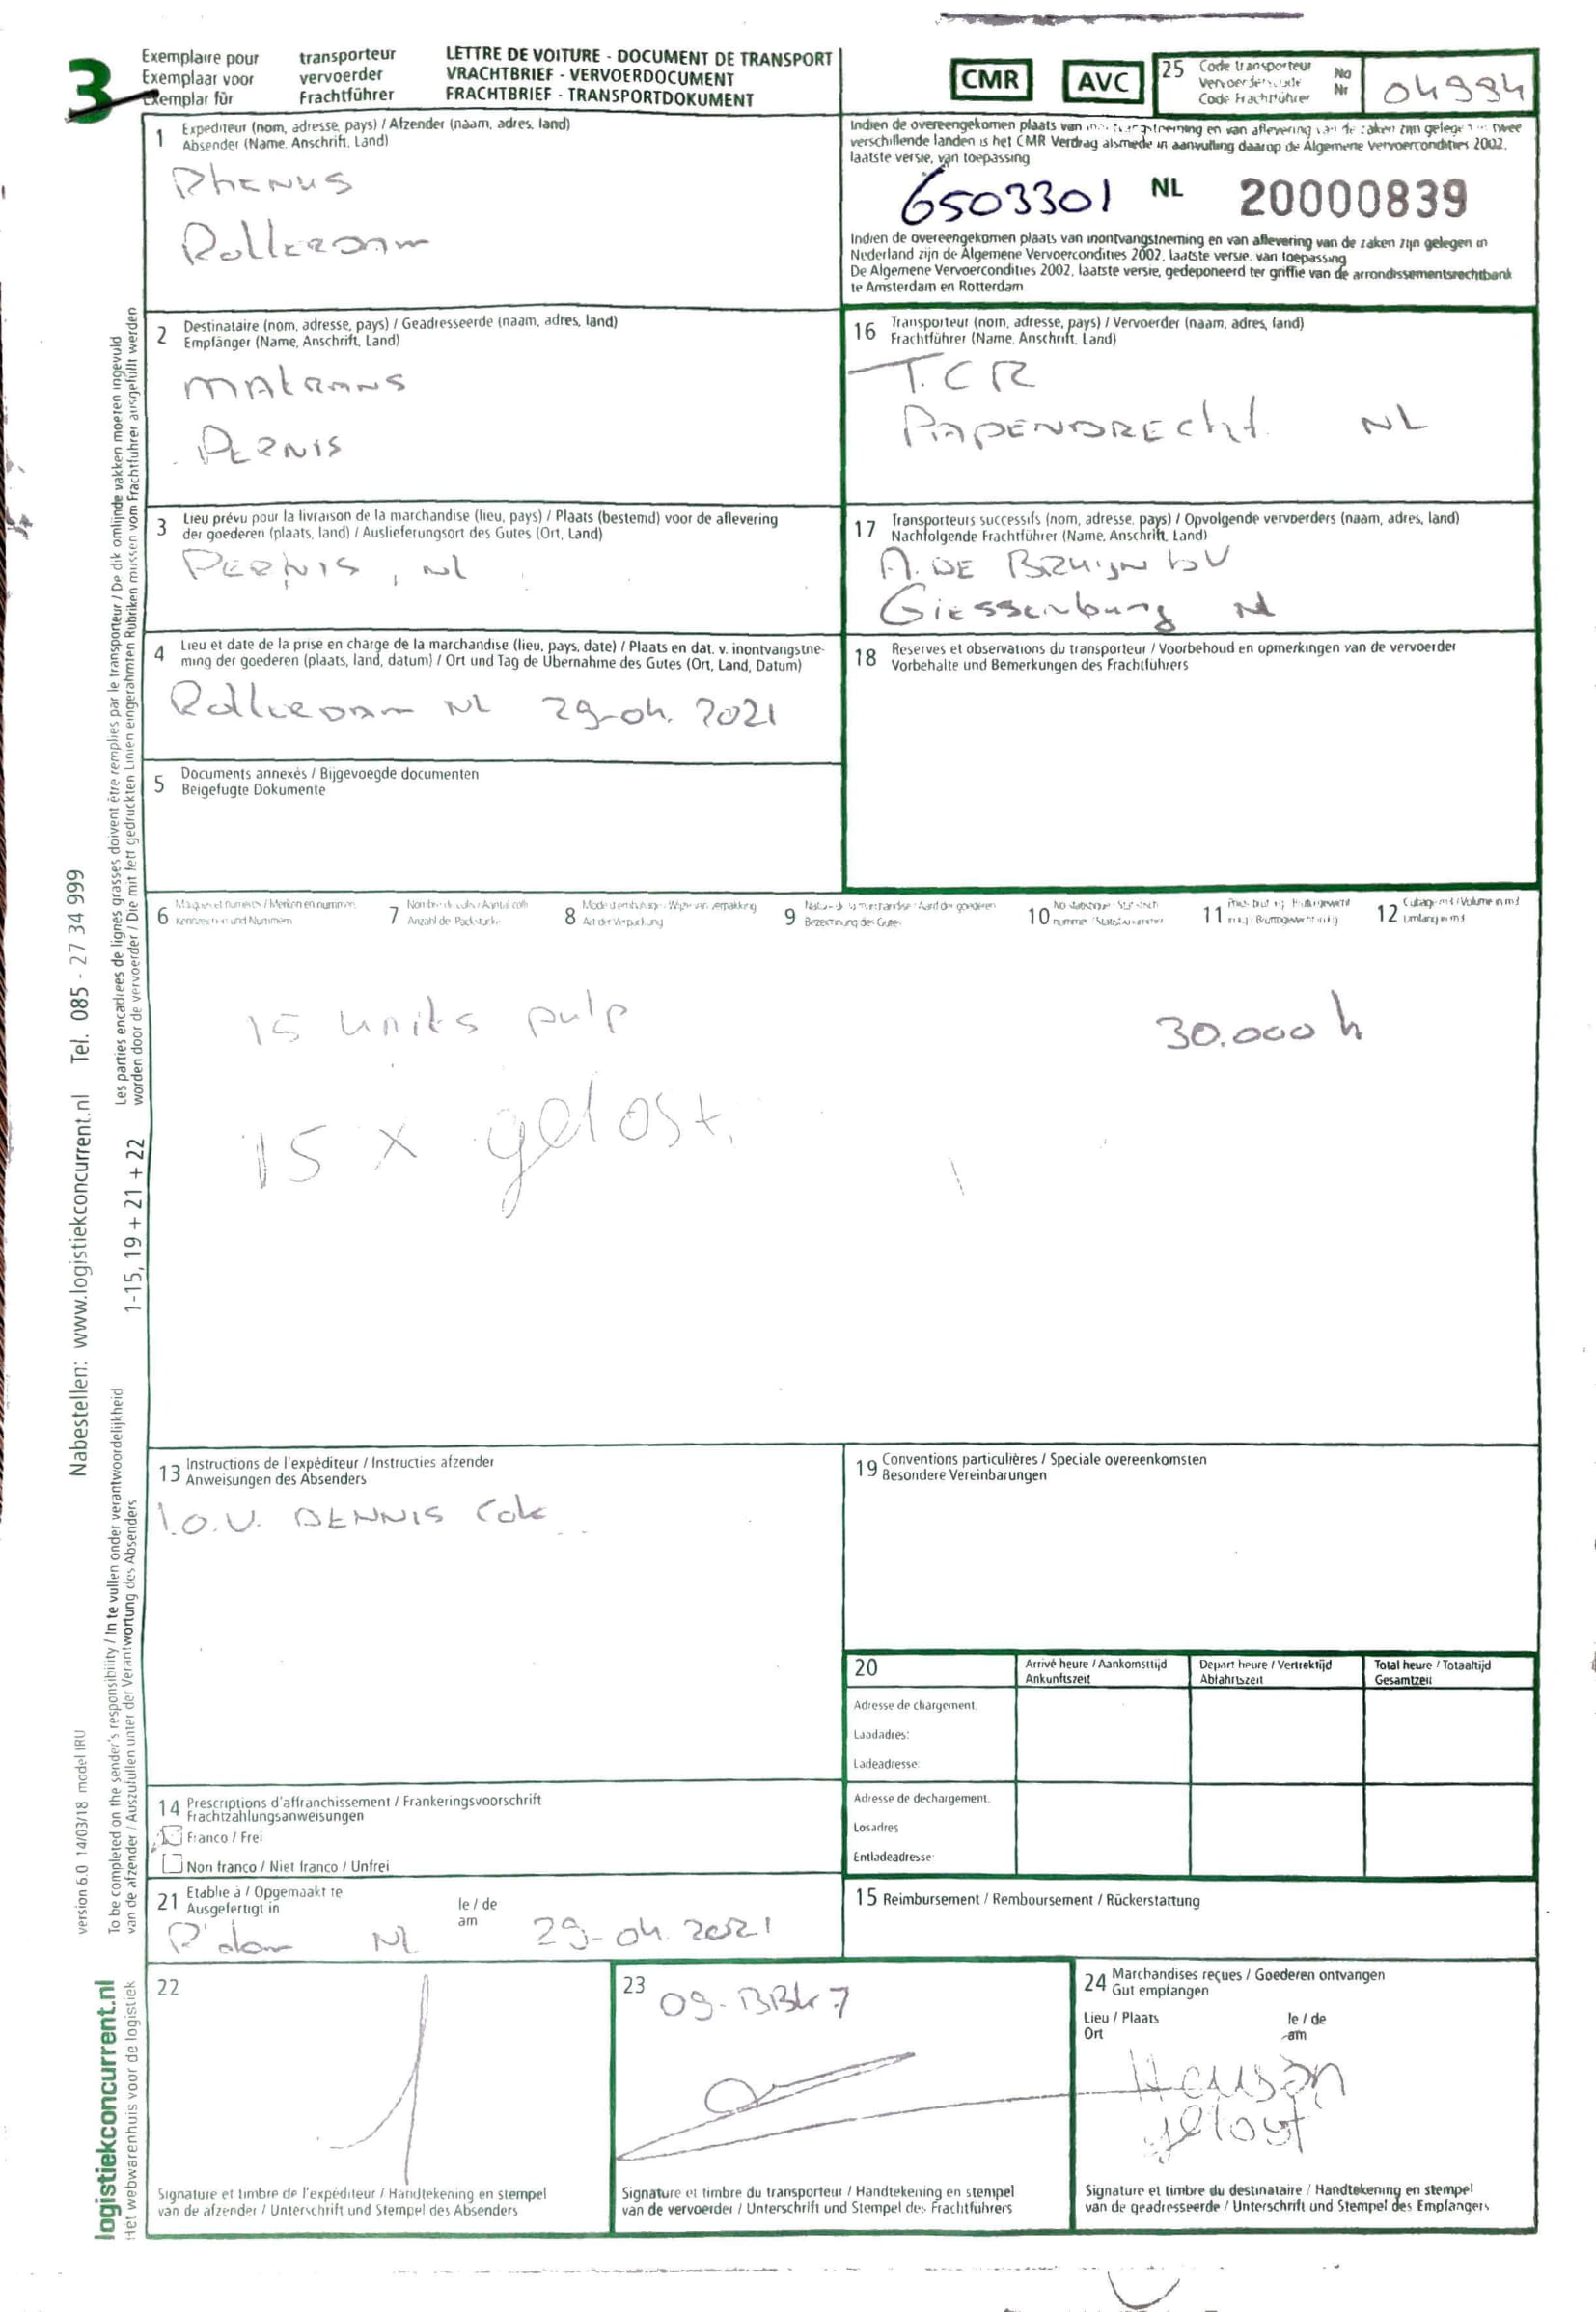 3
Exemplaire pour transporteur
Exemplaar voor vervoerder
Exemplar für Frachtführer
LETTRE DE VOITURE - DOCUMENT DE TRANSPORT
VRACHTBRIEF - VERVOERDOCUMENT
FRACHTBRIEF - TRANSPORTDOKUMENT
CMR
AVC
25 Code transporteur
Vervoerderscode
Code Frachtführer
No
Nr
04994
1 Expediteur (nom, adresse, pays) / Afzender (naam, adres, land)
Absender (Name, Anschrift, Land)
Rhenus
Rotterdam
Indien de overeengekomen plaats van inontvangstneming en van aflevering van de zaken zijn gelegen in twee
verschillende landen is het CMR Verdrag alsmede in aanvulling daarop de Algemene Vervoercondities 2002,
laatste versie, van toepassing
6503301 NL 20000839
Indien de overeengekomen plaats van inontvangstneming en van aflevering van de zaken zijn gelegen in
Nederland zijn de Algemene Vervoercondities 2002, laatste versie, van toepassing
De Algemene Vervoercondities 2002, laatste versie, gedeponeerd ter griffie van de arrondissementsrechtbank
te Amsterdam en Rotterdam
2 Destinataire (nom, adresse, pays) / Geadresseerde (naam, adres, land)
Empfänger (Name, Anschrift, Land)
Matrans
Pernis
16 Transporteur (nom, adresse, pays) / Vervoerder (naam, adres, land)
Frachtführer (Name, Anschrift, Land)
T.C R
PAPENDRECht. NL
3 Lieu prévu pour la livraison de la marchandise (lieu, pays) / Plaats (bestemd) voor de aflevering
der goederen (plaats, land) / Auslieferungsort des Gutes (Ort, Land)
Pernis, NL
17 Transporteurs successifs (nom, adresse, pays) / Opvolgende vervoerders (naam, adres, land)
Nachfolgende Frachtführer (Name, Anschrift, Land)
A. DE BRuijn bV
Giessenburg Nl
4 Lieu et date de la prise en charge de la marchandise (lieu, pays, date) / Plaats en dat. v. inontvangstne-
ming der goederen (plaats, land, datum) / Ort und Tag de Übernahme des Gutes (Ort, Land, Datum)
Rotterdam NL 29-04. 2021
18 Reserves et observations du transporteur / Voorbehoud en opmerkingen van de vervoerder
Vorbehalte und Bemerkungen des Frachtfuhrers
5 Documents annexés / Bijgevoegde documenten
Beigefugte Dokumente
6 Marques et numeros / Merken en nummers
Kennzeichen und Nummern
7 Nombre de colis / Aantal colli
Anzahl der Packstucke
8 Mode d'emballage / Wijze van verpakking
Art der Verpackung
9 Nature de la marchandise / Aard der goederen
Bezeichnung des Gutes
10 No statistique / Statistisch
nummer / Statistiknummer
11 Poids brut kg / Brutogewicht
in kg / Bruttogewicht in kg
12 Cubage m3 / Volume in m3
Umfang in m3
15 units pulp 30.000 k
15 x gelost.
13 Instructions de l'expéditeur / Instructies afzender
Anweisungen des Absenders
I.O.V. DENNIS Cok
19 Conventions particulières / Speciale overeenkomsten
Besondere Vereinbarungen
20
Arrivé heure / Aankomsttijd
Ankunftszeit
Depart heure / Vertrektijd
Abfahrtszeit
Total heure / Totaaltijd
Gesamtzeit
Adresse de chargement.
Laadadres:
Ladeadresse:
Adresse de dechargement.
Losadres
Entladeadresse:
14 Prescriptions d'affranchissement / Frankeringsvoorschrift
Frachtzahlungsanweisungen
Franco / Frei
Non franco / Niet franco / Unfrei
21 Etablie à / Opgemaakt te
Ausgefertigt in
le / de
am
R'dam NL 29-04. 2021
15 Reimbursement / Remboursement / Rückerstattung
22
Signature et timbre de l'expéditeur / Handtekening en stempel
van de afzender / Unterschrift und Stempel des Absenders
23 09-BBK-7
Signature et timbre du transporteur / Handtekening en stempel
van de vervoerder / Unterschrift und Stempel des Frachtführers
24 Marchandises reçues / Goederen ontvangen
Gut empfangen
Lieu / Plaats
Ort
le / de
am
gelost
Signature et timbre du destinataire / Handtekening en stempel
van de geadresseerde / Unterschrift und Stempel des Empfangers
Nabestellen: www.logistiekconcurrent.nl Tel. 085 - 27 34 999
Les parties encadrees de lignes grasses doivent être remplies par le transporteur / De dik omlijnde vakken moeten ingevuld
worden door de vervoerder / Die mit fett gedruckten Linien eingerahmten Rubriken mussen vom Frachtfuhrer ausgefüllt werden
1-15, 19 + 21 + 22
To be completed on the sender's responsibility / In te vullen onder verantwoordelijkheid
van de afzender / Auszufullen unter der Verantwortung des Absenders
version 6.0 14/03/18 model IRU
logistiekconcurrent.nl
Hét webwarenhuis voor de logistiek